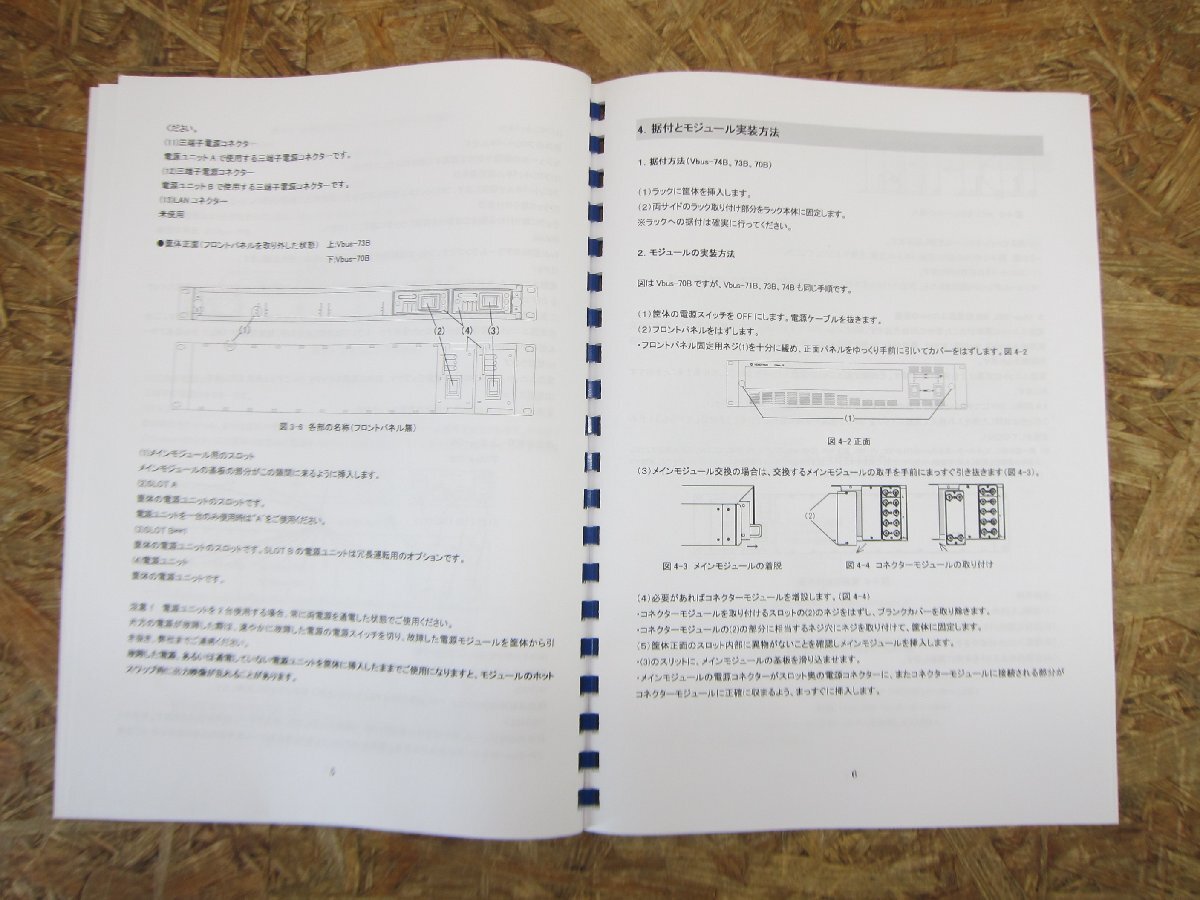 ください。
(11)三端子電源コネクター
電源ユニットAで使用する三端子電源コネクターです。
(12)三端子電源コネクター
電源ユニットBで使用する三端子電源コネクターです。
(13)LANコネクター
未使用
●筐体正面(フロントパネルを取り外した状態) 上:Vbus-73B
下:Vbus-70B
(1) (2) (4) (3)
図3-6 各部の名称(フロントパネル無)
(1)メインモジュール用のスロット
メインモジュールの基板の部分がこの隙間に来るように挿入します。
(2)SLOT A
筐体の電源ユニットのスロットです。
電源ユニットを一台のみ使用時は"A"をご使用ください。
(3)SLOT B
筐体の電源ユニットのスロットです。SLOT Bの電源ユニットは冗長運転用のオプションです。
(4)電源ユニット
筐体の電源ユニットです。
注意! 電源ユニットを2台使用する場合、常に両電源を通電した状態でご使用ください。
片方の電源が故障した際は、速やかに故障した電源の電源スイッチを切り、故障した電源モジュールを筐体から引
き抜き、弊社までご連絡ください。
故障した電源、あるいは通電していない電源ユニットを筐体に挿入したままでご使用になりますと、モジュールのホット
スワップ時に出力映像が乱れることがあります。
5
4. 据付とモジュール実装方法
1. 据付方法(Vbus-74B、73B、70B)
(1)ラックに筐体を挿入します。
(2)両サイドのラック取り付け部分をラック本体に固定します。
※ラックへの据付は確実に行ってください。
2. モジュールの実装方法
図はVbus-70Bですが、Vbus-71B、73B、74Bも同じ手順です。
(1)筐体の電源スイッチをOFFにします。電源ケーブルを抜きます。
(2)フロントパネルをはずします。
・フロントパネル固定用ネジ(1)を十分に緩め、正面パネルをゆっくり手前に引いてカバーをはずします。図4-2
(1)
図4-2 正面
(3)メインモジュール交換の場合は、交換するメインモジュールの取手を手前にまっすぐ引き抜きます(図4-3)。
(2)
図4-3 メインモジュールの着脱
図4-4 コネクターモジュールの取り付け
(4)必要があればコネクターモジュールを増設します。(図4-4)
・コネクターモジュールを取り付けるスロットの(2)のネジをはずし、ブランクカバーを取り除きます。
・コネクターモジュールの(2)の部分に相当するネジ穴にネジを取り付けて、筐体に固定します。
(5)筐体正面のスロット内部に異物がないことを確認しメインモジュールを挿入します。
・(3)のスリットに、メインモジュールの基板を滑り込ませます。
・メインモジュールの電源コネクターがスロット奥の電源コネクターに、またコネクターモジュールに接続される部分が
コネクターモジュールに正確に収まるよう、まっすぐに挿入します。
6